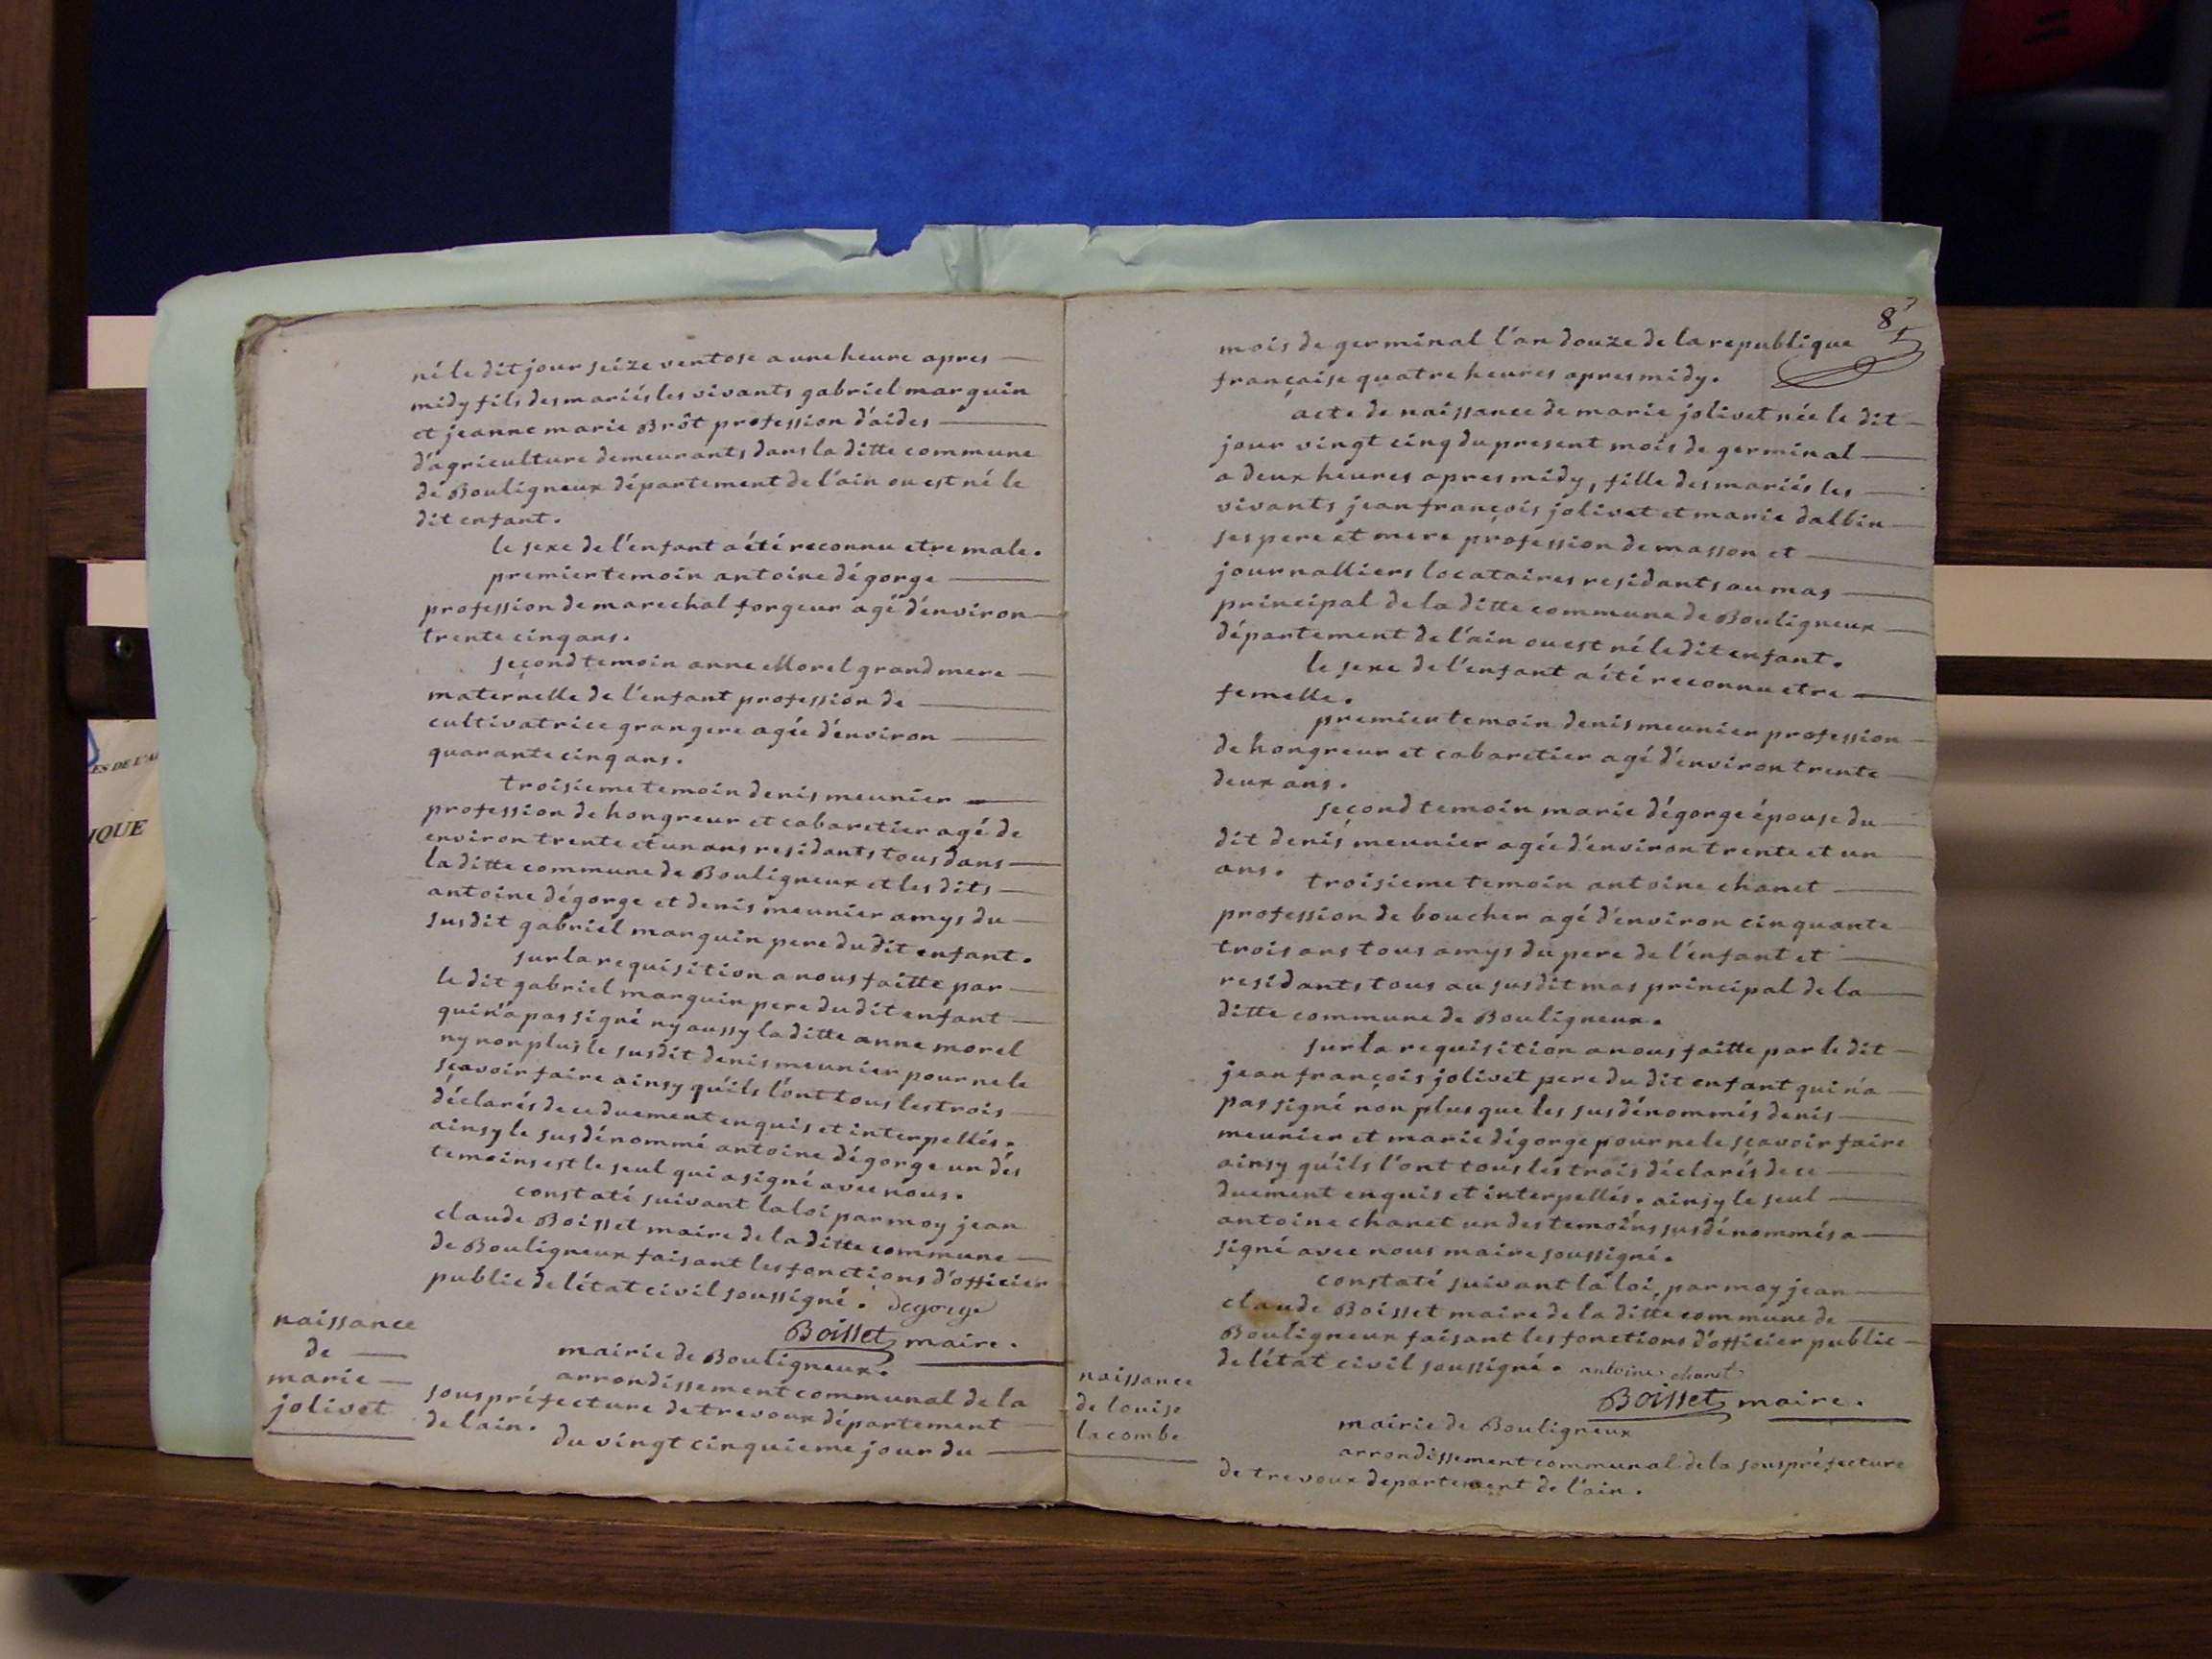 né le dit jour seize ventose a une heure apres
midy fils des mariés les vivants gabriel marguin
et jeanne marie Brôt profession d'aides
d'agriculture demeurants dans la ditte commune
de Bouligneux département de l'ain ou est né le
dit enfant.
le sexe de l'enfant a été reconnu etre male.
premier temoin antoine dégorge
profession de marechal forgeur agé d'environ
trente cinq ans.
seçond temoin anne Morel grand mere
maternelle de l'enfant profession de
cultivatrice grangere agée d'environ
quarante cinq ans.
troisieme temoin denis meunier
profession de hongreur et cabaretier agé de
environ trente et un ans residants tous dans
la ditte commune de Bouligneux et les dits
antoine dégorge et denis meunier amys du
susdit gabriel marguin pere du dit enfant.
sur la requisition a nous faitte par
le dit gabriel marguin pere du dit enfant
qui n'a pas signé ny aussy la ditte anne morel
ny non plus le susdit denis meunier pour ne le
sçavoir faire ainsy qu'ils l'ont tous les trois
déclarés de ce duement enquis et interpellés.
ainsy le susdénommé antoine dégorge un dés
temoins est le seul qui a signé avec nous.
constaté suivant la loi par moy jean
claude Boisset maire de la ditte commune
de Bouligneux faisant les fonctions d'officier
public de l'état civil soussigné. degorge
Boisset maire.
naissance
de
marie
jolivet
mairie de Bouligneux.
arrondissement communal de la
souspréfecture de trevoux département
de lain.
du vingt cinquieme jour du
8
mois de germinal l'an douze de la republique
française quatre heures apres midy.
acte de naissance de marie jolivet née le dit
jour vingt cinq du present mois de germinal
a deux heures apres midy, fille des mariés les
vivants jean françois jolivet et marie dalbin
ses pere et mere profession de masson et
journalliers locataires residants au mas
principal de la ditte commune de Bouligneux
département de l'ain ou est né le dit enfant.
le sexe de l'enfant a été reconnu etre
femelle.
premier temoin denis meunier profession
de hongreur et cabaretier agé d'environ trente
deux ans.
seçond temoin marie dégorge épouse du
dit denis meunier agée d'environ trente et un
ans.
troisieme temoin antoine chanet
profession de boucher agé d'environ cinquante
trois ans tous amys du pere de l'enfant et
residants tous au susdit mas principal de la
ditte commune de Bouligneux.
sur la requisition a nous faitte par le dit
jean françois jolivet pere du dit enfant qui n'a
pas signé non plus que les susdénommés denis
meunier et marie dégorge pour ne le sçavoir faire
ainsy qu'ils l'ont tous lés trois déclarés de ce
duement enquis et interpellés. ainsy le seul
antoine chanet un des temoins susdénommés a
signé avec nous maire soussigné.
constaté suivant la loi, par moy jean
claude Boisset maire de la ditte commune de
Bouligneux faisant les fonctions d'officier public
de l'état civil soussigné. antoine chanet
Boisset maire.
naissance
de louise
lacombe
mairie de Bouligneux
arrondissement communal de la souspréfecture
de trevoux departement de l'ain.
ES DE L'A
IQUE